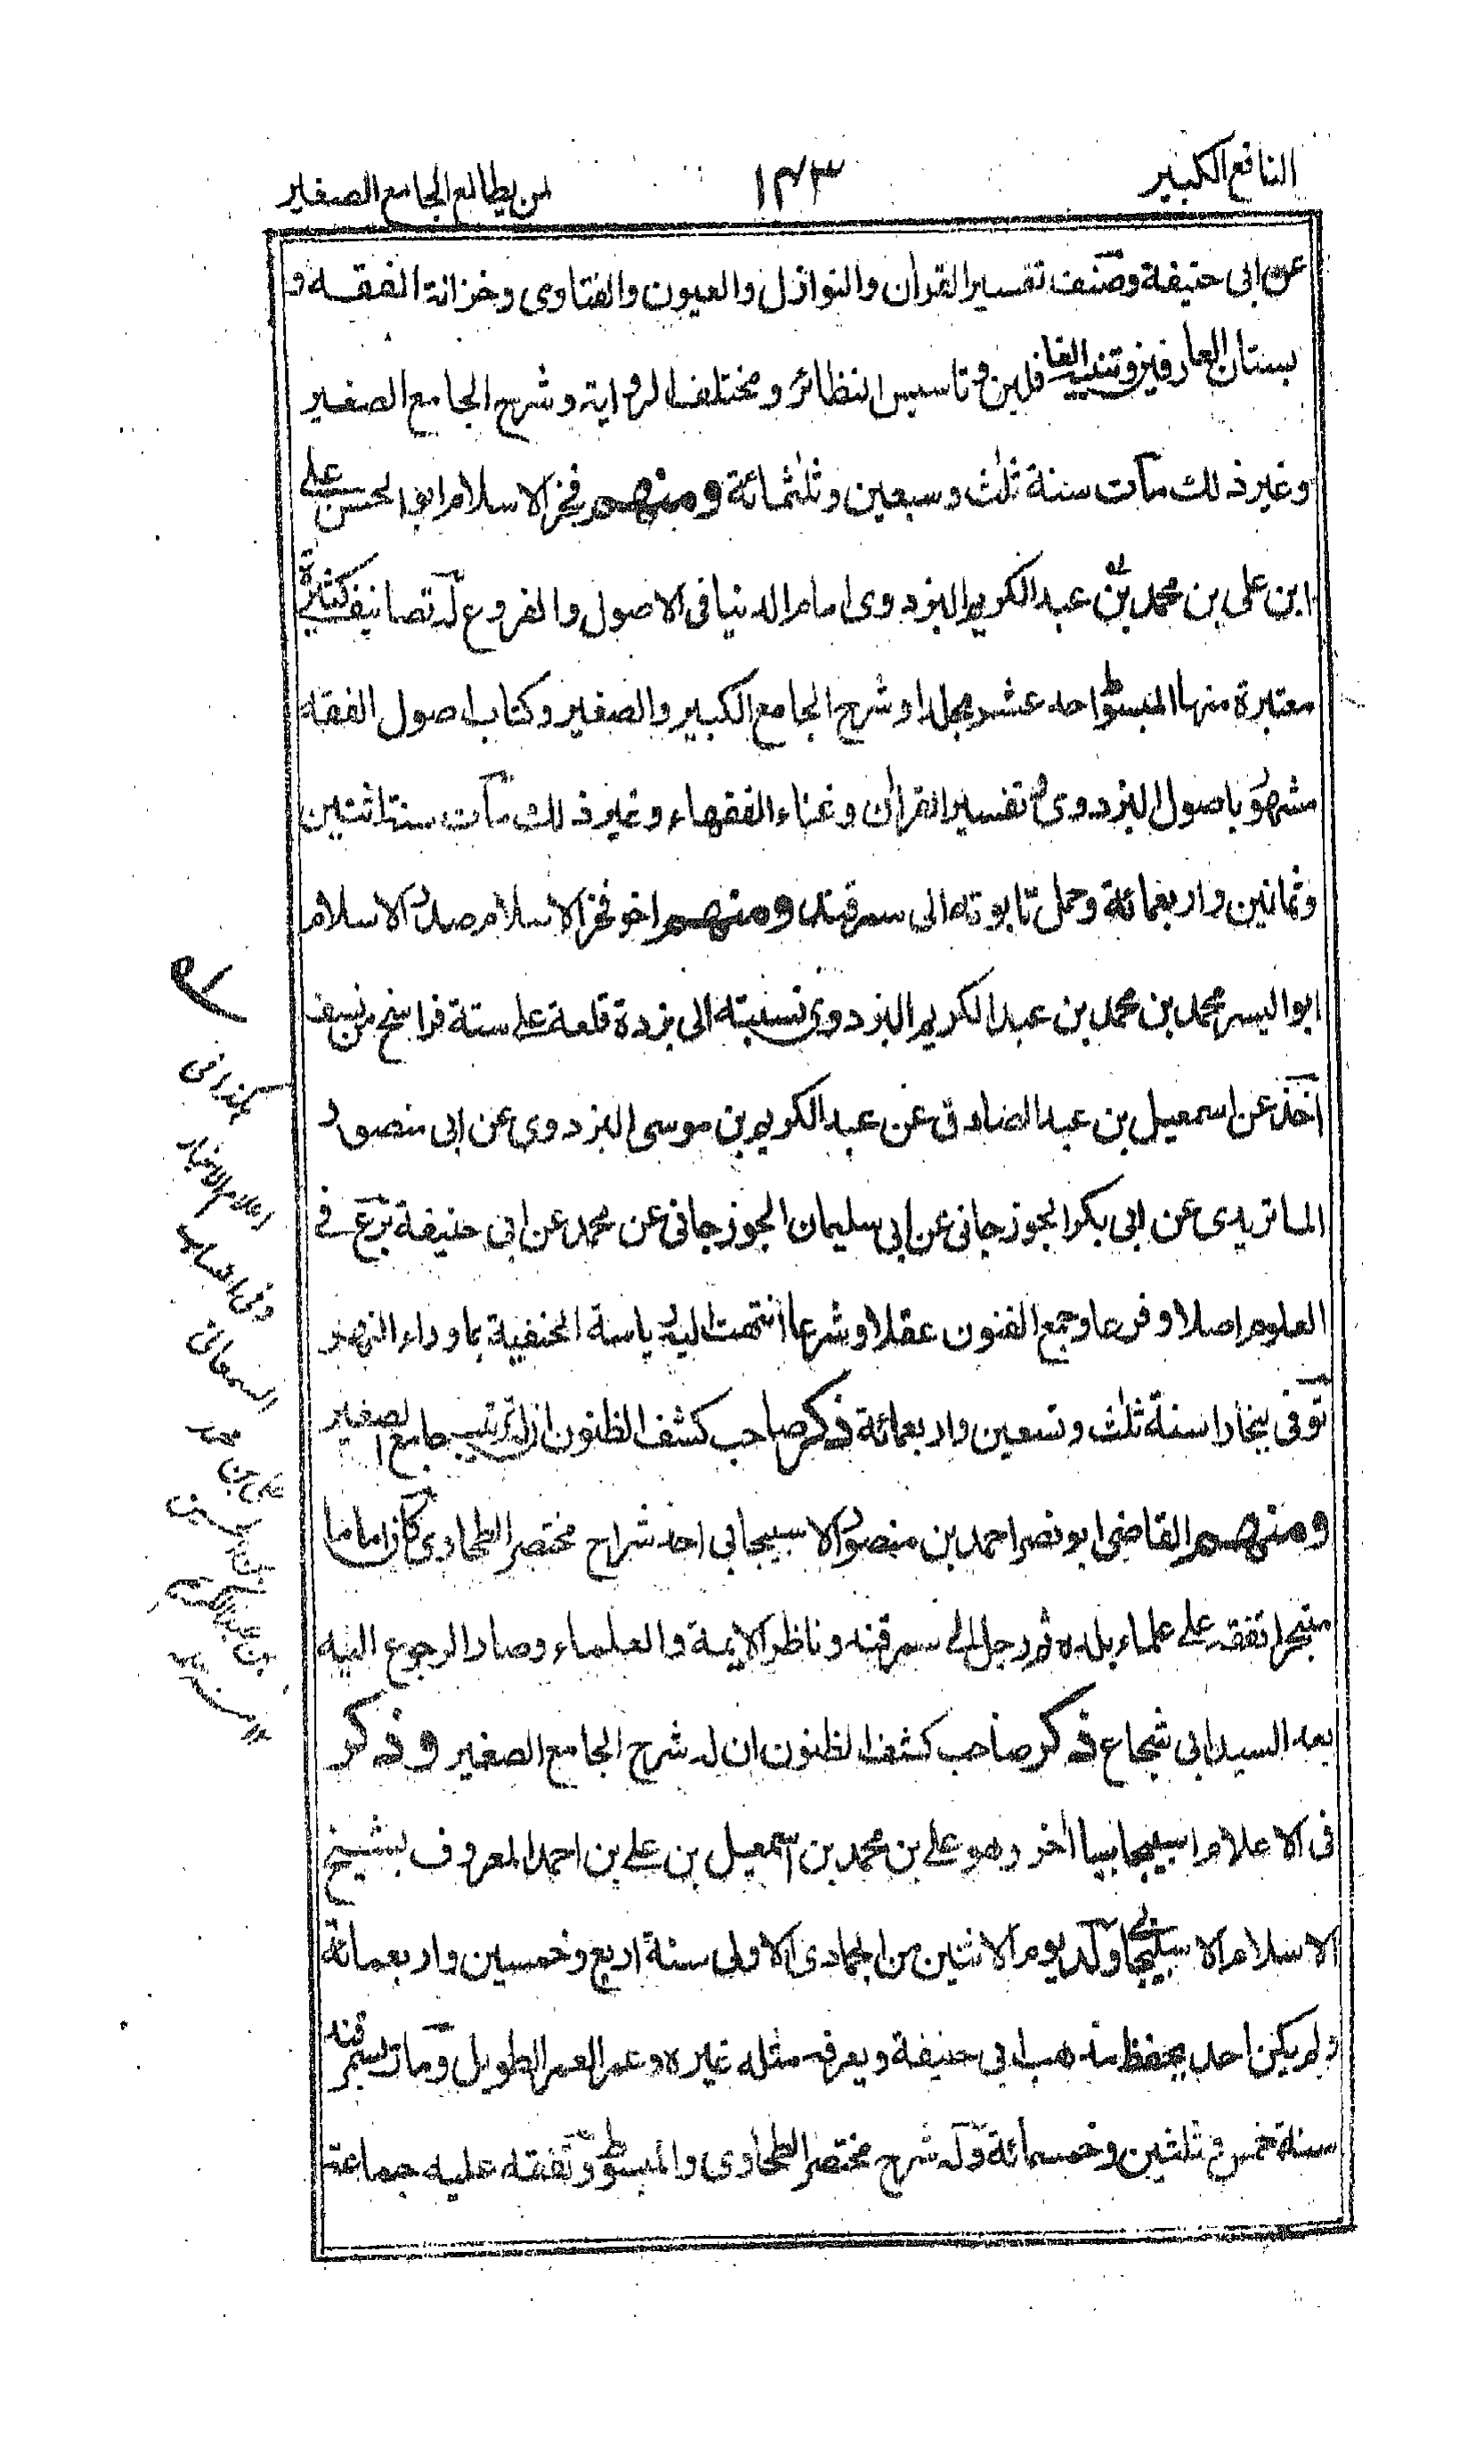 النافع الكبير
١٤٣
لمن يطالع الجامع الصغير
عن ابى حنيفة وصنف تفسير القران والنوازل والعيون والفتاوى وخزانة الفقه و
بستان العارفين وتنبيه الغافلين وتاسيس النظائر ومختلف الرواية وشرح الجامع الصغير
وغير ذلك مات سنة ثلث وسبعين وثلثمائة ومنهم فخر الاسلام ابو الحسن على
ابن على بن محمد بن عبد الكريم البزدوى امام الدنيا فى الاصول والفروع له تصانيف كثيرة
معتبرة منها المبسوط احد عشر مجلدا وشرح الجامع الكبير والصغير وكتاب اصول الفقه
مشهور باصول البزدوى وتفسير القران وغناء الفقهاء وغير ذلك مات سنة اثنتين
وثمانين واربعمائة وحمل تابوته الى سمرقند ومنهم اخو فخر الاسلام صدر الاسلام
ابو اليسر محمد بن محمد بن عبد الكريم البزدوى نسبته الى بزدة قلعة على ستة فراسخ من نسف
اخذ عن اسمعيل بن عبد الصادق عن عبد الكريم بن موسى البزدوى عن ابى منصور
الماتريدى عن ابى بكر الجوزجانى عن ابى سليمان الجوزجانى عن محمد عن ابى حنيفة برع فى
العلوم اصلا وفرعا وجمع الفنون عقلا وشرعا انتهت اليه رياسة الحنفية بما وراء النهر
توفى ببخارا سنة ثلث وتسعين واربعمائة ذكر صاحب كشف الظنون ان له ترتيب جامع الصغير
ومنهم القاضى ابو نصر احمد بن منصور الاسبيجابى احد شراح مختصر الطحاوى كان اماما
متبحرا تفقه على علماء بلده ثم رحل الى سمرقند وناظر الايمة والعلماء وصار الرجوع اليه
بعد السيد ابى شجاع ذكر صاحب كشف الظنون ان له شرح الجامع الصغير وذكر
فى الاعلام اسبيجابيا اخر وهو على بن محمد بن اسمعيل بن على بن احمد المعروف بشيخ
الاسلام الاسبيجابى ولد يوم الاثنين من الجمادى الاولى سنة اربع وخمسين واربعمائة
ولم يكن احد يحفظ مذهب ابى حنيفة ويعرف مثله غيره وعمر العمر الطويل ومات بسمرقند
سنة خمس وثلثين وخمسمائة وله شرح مختصر الطحاوى والمبسوط وتفقه عليه جماعة
هكذا فى
اعلام الاخيار
وفى انساب
السمعانى
على بن محمد
بن الحسين
بن عبد الكريم